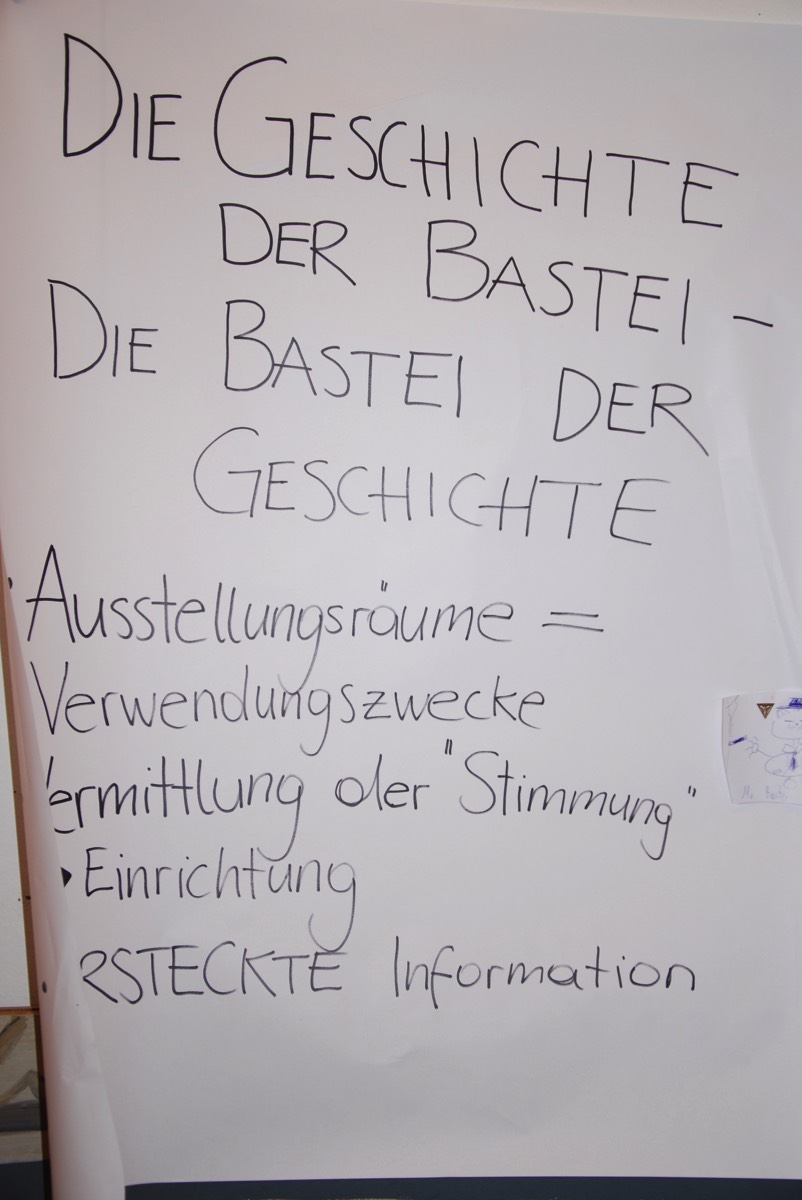 DIE GESCHICHTE
DER BASTEI –
DIE BASTEI DER
GESCHICHTE
Ausstellungsräume =
Verwendungszwecke
ermittlung der "Stimmung"
Einrichtung
RSTECKTE Information